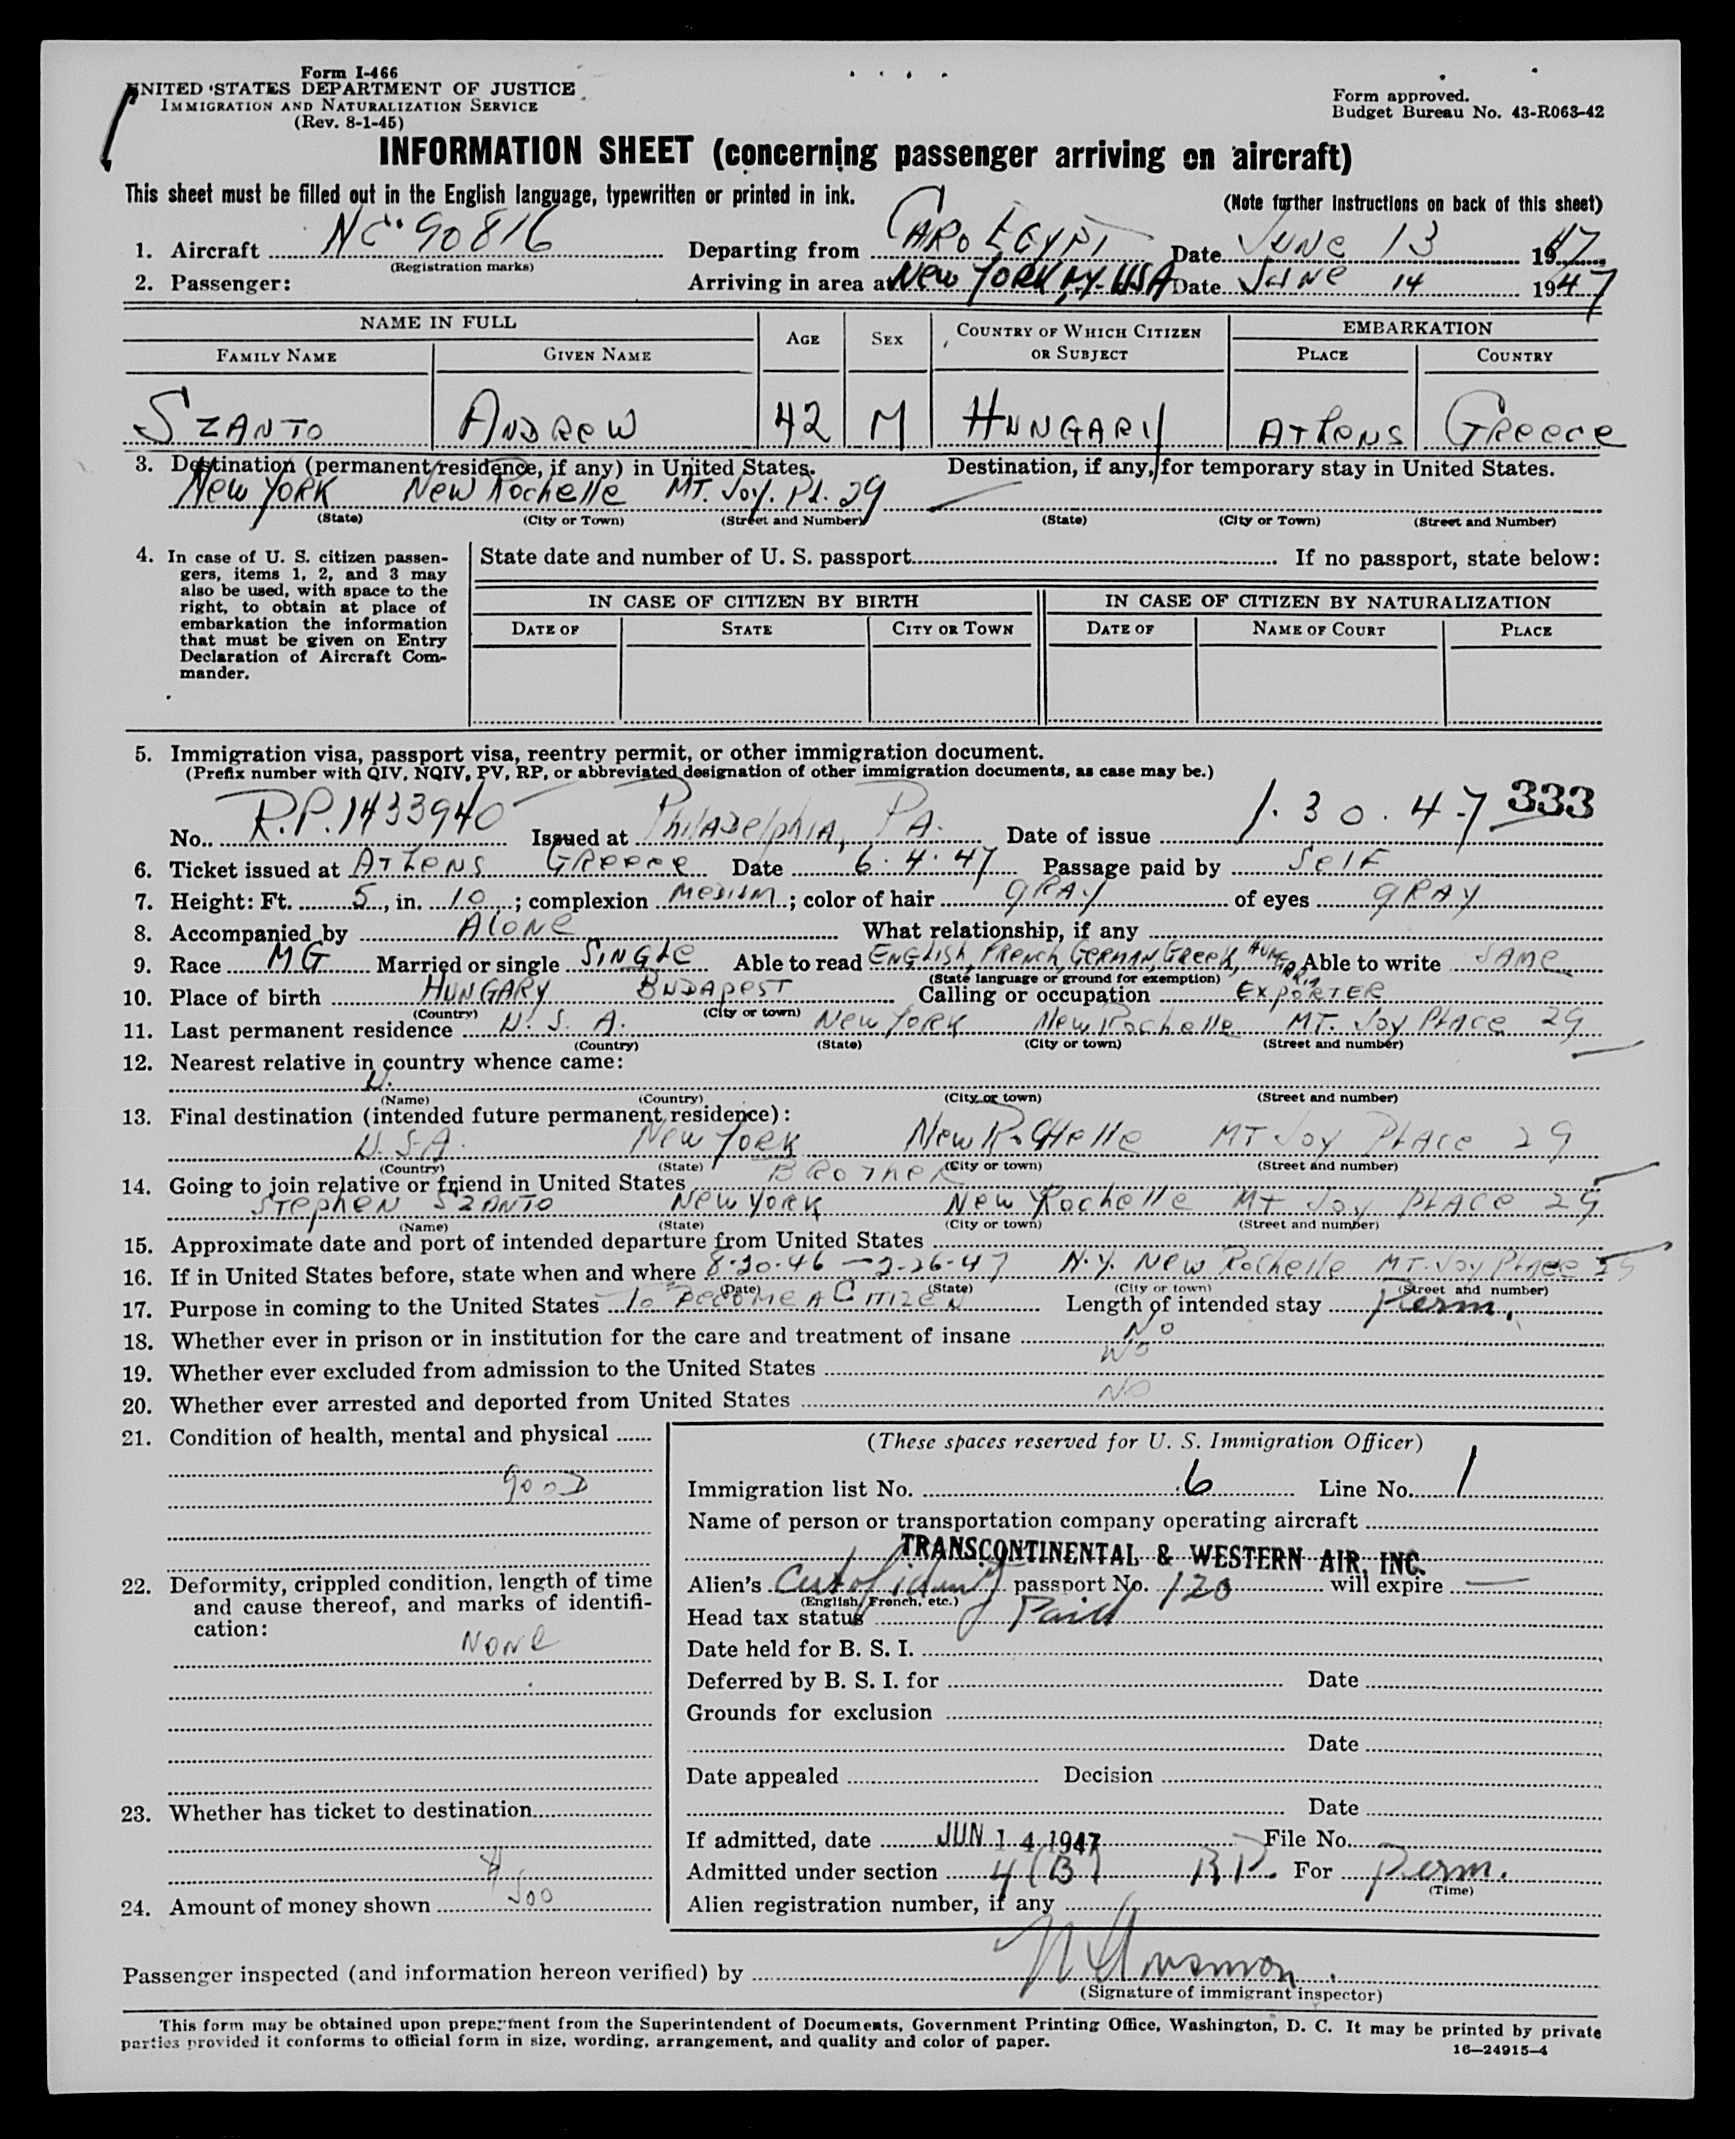 Form I-466
UNITED STATES DEPARTMENT OF JUSTICE
IMMIGRATION AND NATURALIZATION SERVICE
(Rev. 8-1-45)
Form approved.
Budget Bureau No. 43-R063-42
INFORMATION SHEET (concerning passenger arriving on aircraft)
This sheet must be filled out in the English language, typewritten or printed in ink.
(Note further instructions on back of this sheet)
1. Aircraft NC·90816 Departing from CARO EGYPT Date JUNE 13 1947
(Registration marks)
2. Passenger: Arriving in area at New YORK, NY. USA Date JUNE 14 1947
NAME IN FULL AGE SEX COUNTRY OF WHICH CITIZEN OR SUBJECT EMBARKATION
FAMILY NAME GIVEN NAME PLACE COUNTRY
SZANTO ANDREW 42 M HUNGARY ATHENS GREECE
3. Destination (permanent residence, if any) in United States. Destination, if any, for temporary stay in United States.
New YORK New Rochelle MT. Joy. Pl. 29 —
(State) (City or Town) (Street and Number) (State) (City or Town) (Street and Number)
4. In case of U. S. citizen passen-
gers, items 1, 2, and 3 may
also be used, with space to the
right, to obtain at place of
embarkation the information
that must be given on Entry
Declaration of Aircraft Com-
mander.
State date and number of U. S. passport If no passport, state below:
IN CASE OF CITIZEN BY BIRTH IN CASE OF CITIZEN BY NATURALIZATION
DATE OF STATE CITY OR TOWN DATE OF NAME OF COURT PLACE
5. Immigration visa, passport visa, reentry permit, or other immigration document.
(Prefix number with QIV, NQIV, PV, RP, or abbreviated designation of other immigration documents, as case may be.)
333
No. R.P. 1433940 Issued at PhilADelphIA, PA. Date of issue 1. 30. 47
6. Ticket issued at ATHENS GREECE Date 6. 4. 47 Passage paid by SelF
7. Height: Ft. 5, in. 10; complexion MEDIUM; color of hair GRAY of eyes GRAY
8. Accompanied by AlONE What relationship, if any
9. Race MG Married or single SINGLE Able to read ENGLISH, FRENCH, GERMAN, GREEK, HUNGARIAN Able to write SAME
(State language or ground for exemption)
10. Place of birth HUNGARY BUDAPEST Calling or occupation EXPORTER
(Country) (City or town)
11. Last permanent residence U. S. A. New YORK New Rochelle MT. Joy PLACE 29
(Country) (State) (City or town) (Street and number)
12. Nearest relative in country whence came:
(Name) (Country) (City or town) (Street and number)
13. Final destination (intended future permanent residence):
U. S. A. New YORK New RoCHelle MT Joy PLACE 29
(Country) (State) (City or town) (Street and number)
14. Going to join relative or friend in United States BROTHER
STEPHEN SZANTO New YORK New Rochelle MT Joy PLACE 29
(Name) (State) (City or town) (Street and number)
15. Approximate date and port of intended departure from United States
16. If in United States before, state when and where 8·20·46 — 2·26·47 N.Y. New Rochelle MT. Joy PLACE 29
(Date) (State) (City or town) (Street and number)
17. Purpose in coming to the United States To BECOME A CITIZEN Length of intended stay Perm.
18. Whether ever in prison or in institution for the care and treatment of insane No
19. Whether ever excluded from admission to the United States No
20. Whether ever arrested and deported from United States NO
21. Condition of health, mental and physical
gooD
22. Deformity, crippled condition, length of time
and cause thereof, and marks of identifi-
cation:
NONE
23. Whether has ticket to destination
24. Amount of money shown $500
(These spaces reserved for U. S. Immigration Officer)
Immigration list No. 6 Line No. 1
Name of person or transportation company operating aircraft
TRANSCONTINENTAL & WESTERN AIR, INC.
Alien's Cert of identity passport No. 120 will expire —
(English, French, etc.)
Head tax status Paid
Date held for B. S. I.
Deferred by B. S. I. for Date
Grounds for exclusion
Date
Date appealed Decision
Date
If admitted, date JUN 14 1947 File No.
Admitted under section 4(B) RP. For Perm.
(Time)
Alien registration number, if any
Passenger inspected (and information hereon verified) by
(Signature of immigrant inspector)
This form may be obtained upon prepayment from the Superintendent of Documents, Government Printing Office, Washington, D. C. It may be printed by private
parties provided it conforms to official form in size, wording, arrangement, and quality and color of paper.
16—24915-4